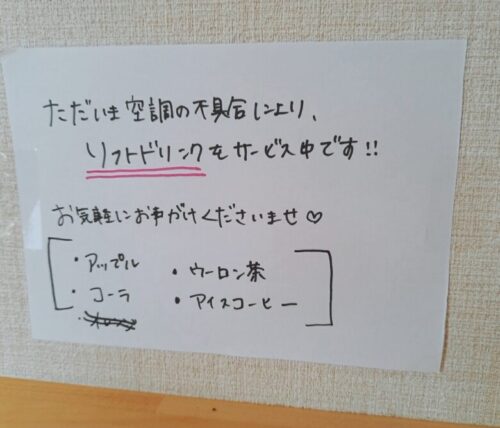 ただいま空調の不具合により、
ソフトドリンクをサービス中です!!
お気軽にお声がけくださいませ♡
・アップル
・コーラ
・ウーロン茶
・アイスコーヒー